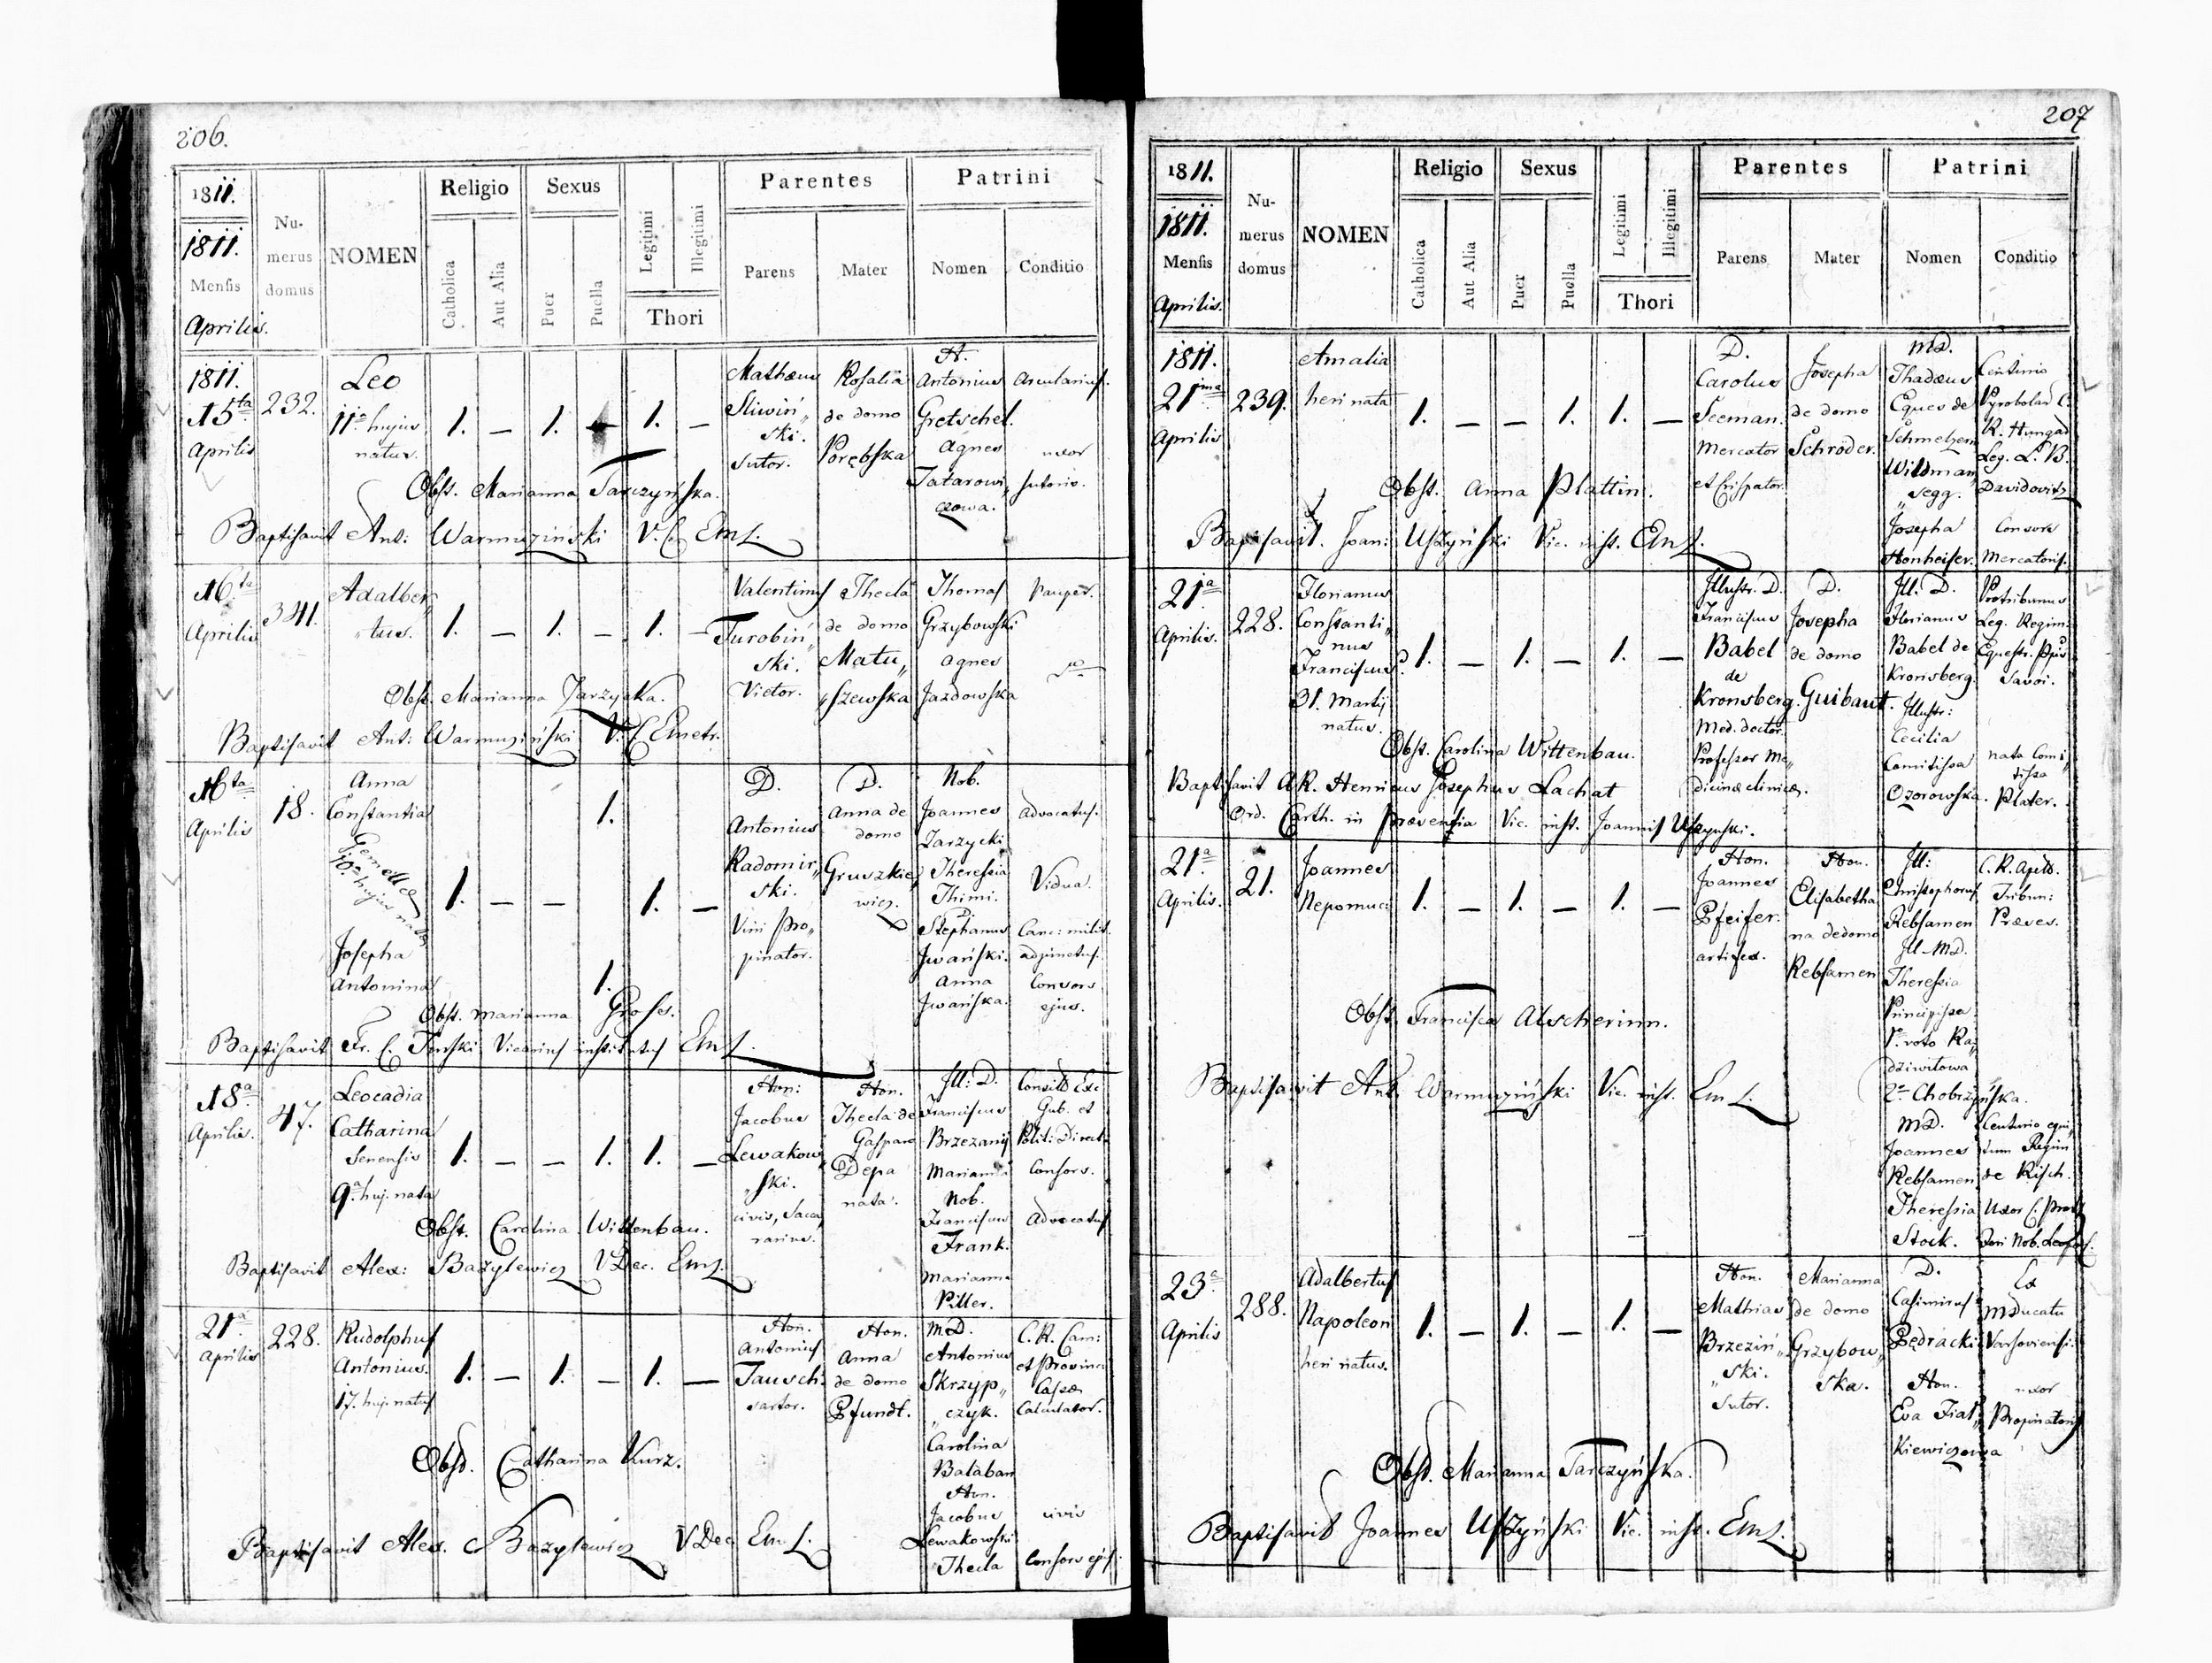 206.
1811.
1811.
Mensis
Aprilis.
Nu-
merus
domus
NOMEN
Religio
Catholica
Aut Alia
Sexus
Puer
Puella
Legitimi
Illegitimi
Thori
Parentes
Parens
Mater
Patrini
Nomen
Conditio
1811.
15ta
Aprilis
232.
Leo
11a hujus
natus.
1. — 1. — 1. —
Mathæus
Sliwiń„
ski.
Sutor.
Rosalia
de domo
Porębska
H.
Antonius
Gretschel.
Agnes
Tatarowi„
czowa.
Arcularius.
uxor
sutoris.
Obst. Marianna Tarczyńska.
Baptisavit Ant: Warmuziński V. C. Emf.
16ta
Aprilis
341.
Adalber„
„tus.
1. — 1. — 1. —
Valentinus
Turobiń„
ski.
Victor.
Thecla
de domo
Matu„
„szewska
Thomas
Grzybowski
Agnes
Jazdowska
Pauper.
Obst. Marianna Jarzycka.
Baptisavit Ant: Warmuziński V. C. Emetr.
16ta
Aprilis
18.
Anna
Constantia
Gemellæ
10a hujus natæ
Josepha
Antonina
1.
1. — — 1. —
1.
D.
Antonius
Radomir„
ski.
Vini Pro„
pinator.
D.
Anna de
domo
Gruszkie„
wicz.
Nob.
Joannes
Zarzycki
Theressia
Thimi.
D.
Stephanus
Jwański.
Anna
Jwańska.
Advocatus.
Vidua.
Canc: milit.
adjunctus.
Consors
ejus.
Obst. Marianna Groses.
Baptisavit Fr. C. Toński Vicarius institutus Emf.
18a
Aprilis.
47.
Leocadia
Catharina
Senensis
9a huj. nata
1. — — 1. 1. —
Hon:
Jacobus
Lewakow„
„ski.
civis, Sacca„
rarius.
Hon.
Thecla de
Gaspare
Depa
nata.
Jll: D.
Franciscus
Brzezany
Marianna
Nob.
Franciscus
Frank.
Marianna
Piller.
Gub. et
Polit: Direct.
Consors.
Advocatus
Obst. Carolina Wittenbau.
Baptisavit Alex: Bazylewicz V Dec. Emf.
21a
Aprilis
228.
Rudolphus
Antonius.
17. huj. natus
1. — 1. — 1. —
Hon.
Antonius
Tausch.
sartor.
Hon.
Anna
de domo
Pfundt.
MD.
Antonius
Skrzyp„
„czyk.
Carolina
Balaban
Hon.
Jacobus
Lewakowski
Thecla
C. R. Cam:
et Provinc:
Cassæ
Calculator.
civis
Consors ejus.
Obst. Catharina Kurz.
Baptisavit Alex. Bazylewicz V Dec. Emf.
207
1811.
1811.
Mensis
Aprilis.
Nu-
merus
domus
NOMEN
Religio
Catholica
Aut Alia
Sexus
Puer
Puella
Legitimi
Illegitimi
Thori
Parentes
Parens
Mater
Patrini
Nomen
Conditio
1811.
21ma
Aprilis
239.
Amalia
heri nata
1. — — 1. 1. —
D.
Carolus
Seeman.
Mercator
et Crispator.
Josepha
de domo
Schröder.
MD.
Thadæus
Eques de
Schmelzern
Wildman„
„segg.
Josepha
Honheiser.
Centurio
Pyrobolar. C.
R. Hungar.
Leg. L. B.
Davidovits
Consors
Mercatoris.
Obst. Anna Plattin.
Baptisavit. Joan: Uszyński Vic. inst. Emf.
21a
Aprilis.
228.
Florianus
Constanti„
nus
Franciscus
31. Martij
natus.
1. — 1. — 1. —
Jllustr. D.
Franciscus
Babel
de
Kronsberg.
Med. doctor.
Professor Me„
dicinæ clinicæ.
D.
Josepha
de domo
Guibaut.
Jll. D.
Florianus
Babel de
Kronsberg.
Jllustr:
Cecilia
Comitissa
Ozorowska.
Protribunus
Leg. Regim:
Equestr. Ppis
Savoi.
nata Comi„
tissa
Plater.
Obst. Carolina Wittenbau.
Baptisavit A. R. Henricus Josephus Lachat
Ord. Carth. in Præventia Vic. inst. Joannis Uszyński.
21a
Aprilis.
21.
Joannes
Nepomuc:
1. — 1. — 1. —
Hon.
Joannes
Pfeifer.
artifex.
Hon.
Elisabetha
na dedomo
Rebsamen
Jll:
Christophorus
Rebsamen
Jll-MD.
Theressia
Principissa
1o voto Ra„
dziwiłowa
2o Chobrzyńska.
MD.
Joannes
Rebsamen
Theressia
Stock.
C. R. Apels.
Tribun:
Præses.
Centurio equi„
tum Regim:
de Risch.
Obst. Francisca Alscherinn.
Baptisavit Ant. Warmuziński Vic. inst. Emf.
23a
Aprilis
288.
Adalbertus
Napoleon
heri natus.
1. — 1. — 1. —
Hon.
Mathias
Brzeziń„
„ski.
Sutor.
Marianna
de domo
Grzybow„
ska.
D.
Casimirus
Pędracki.
Hon.
Eva Fiał„
kiewiczowa
Ex
MDucatu
Varsoviensi.
uxor
Propinatoris
Obst. Marianna Tarczyńska.
Baptisavit Joannes Uszyński Vic. inst. Emf.